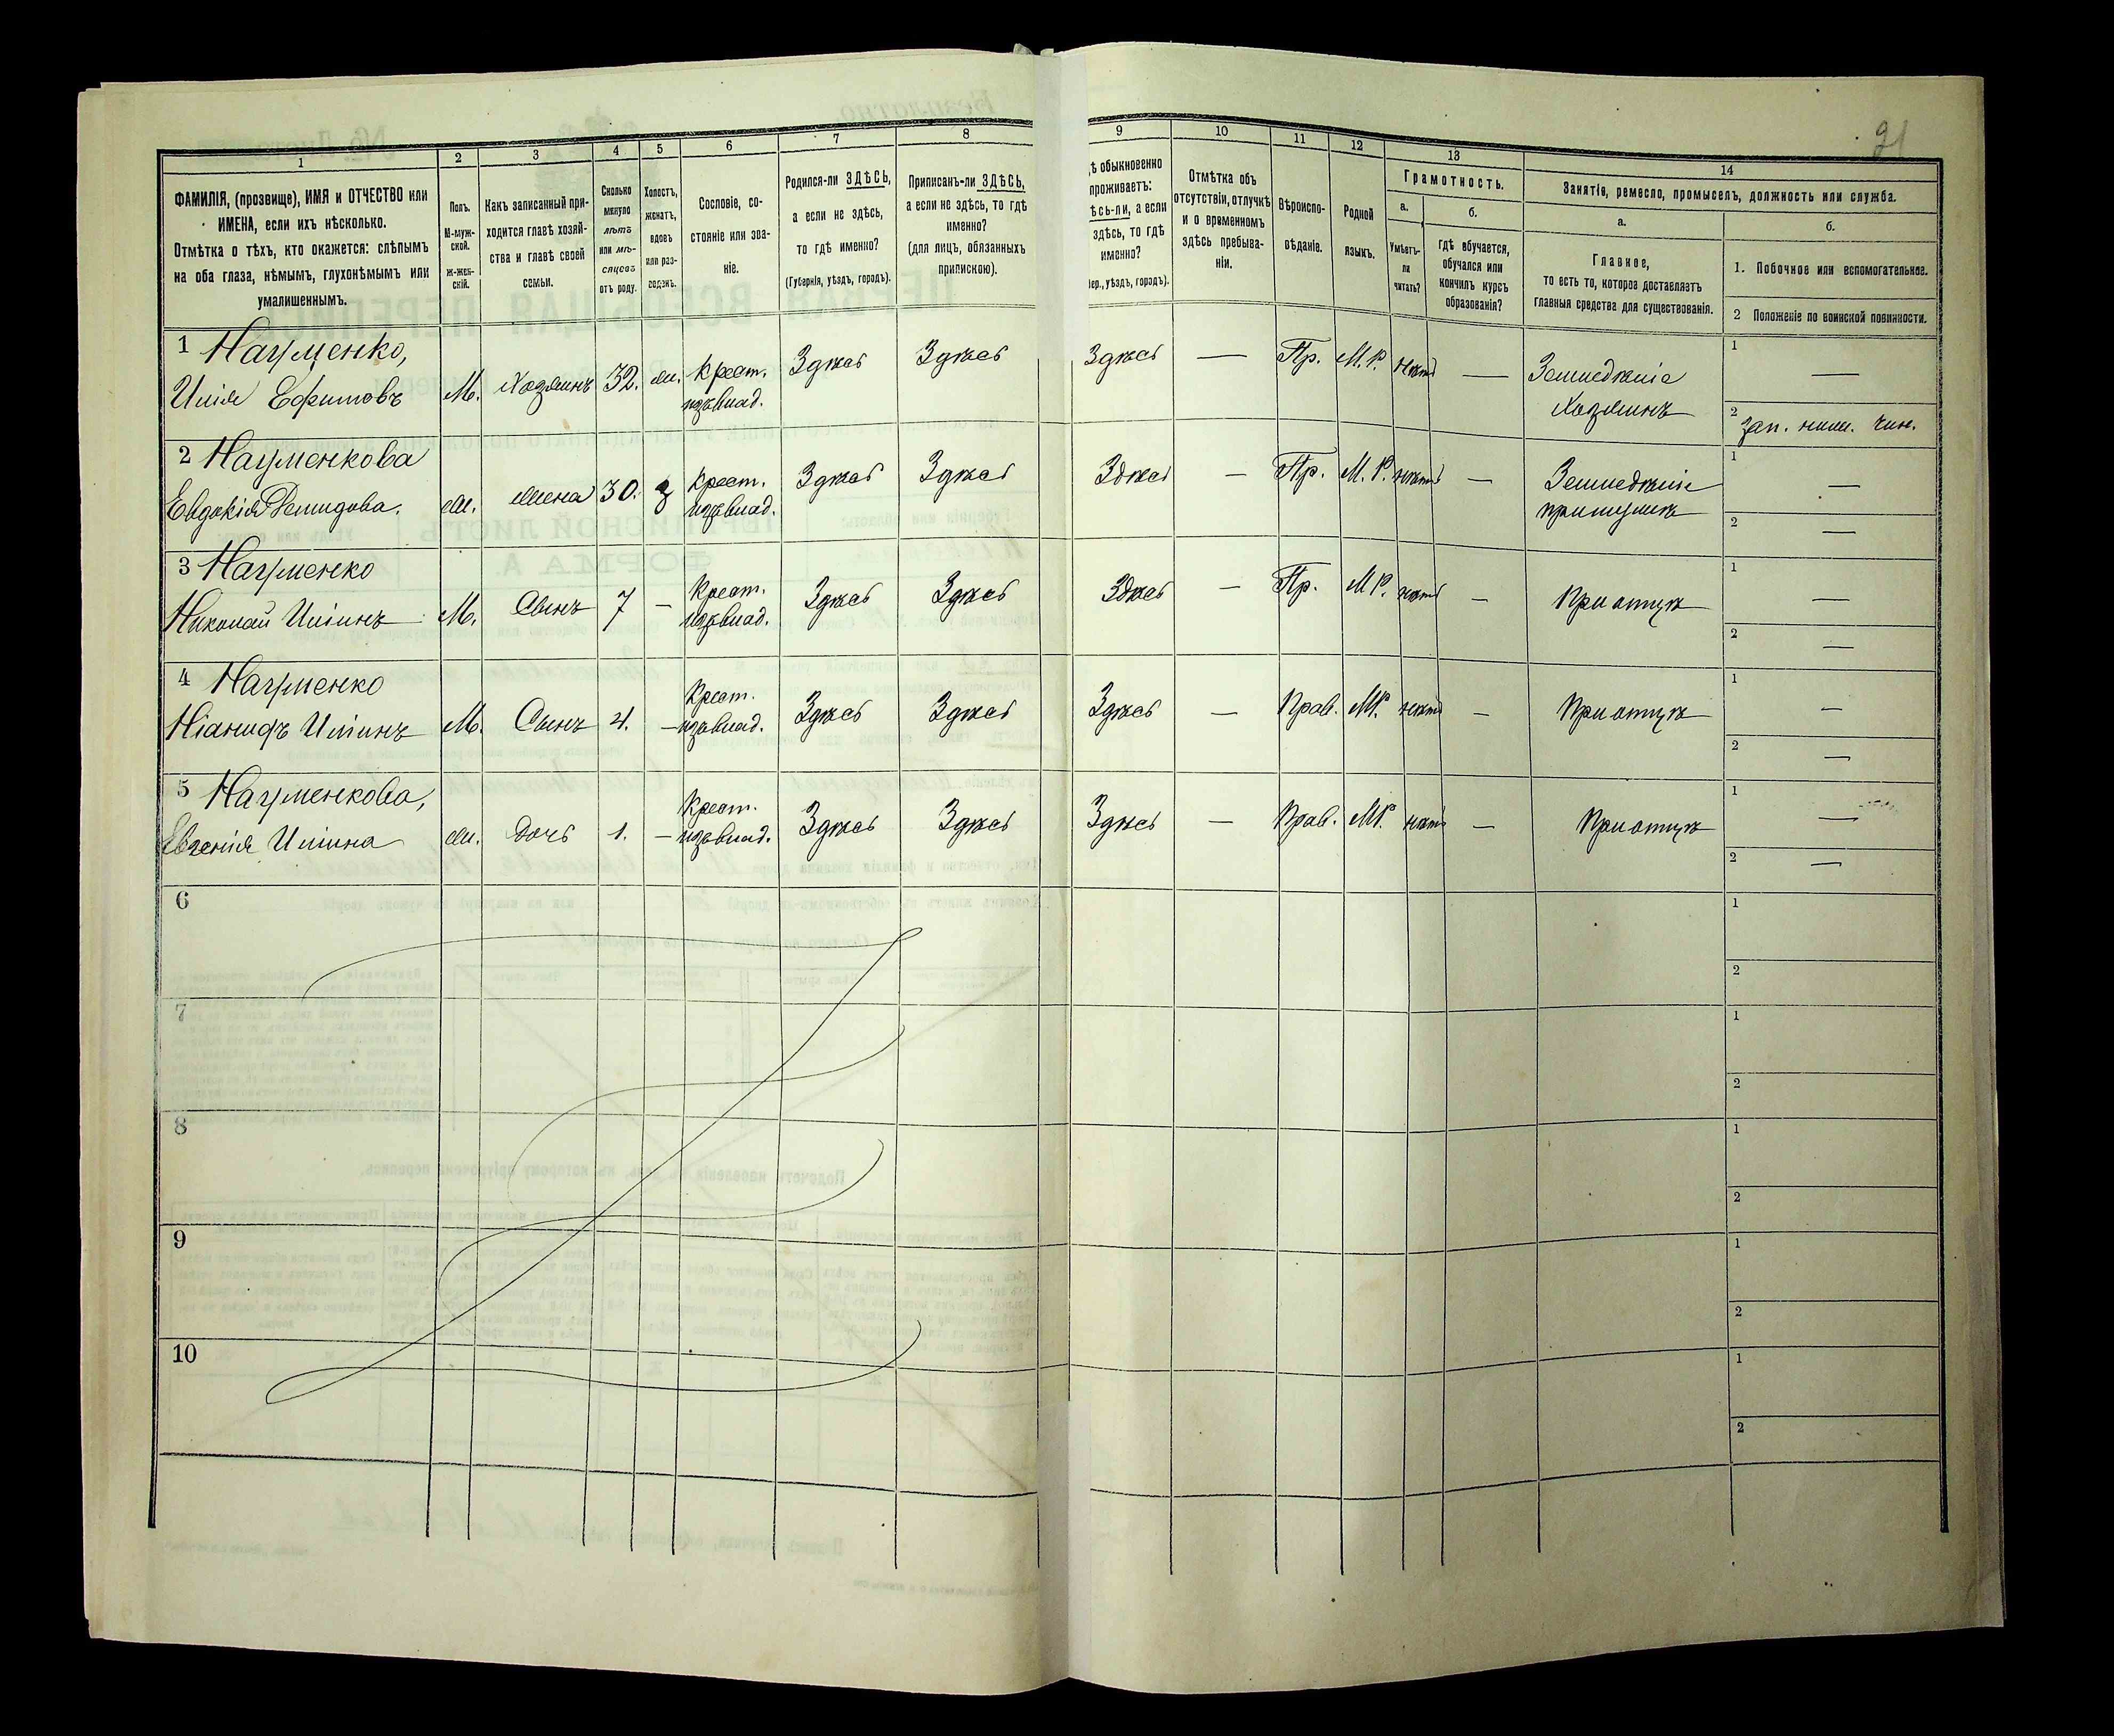 21
1
2
3
4
5
6
7
8
9
10
11
12
13
14
ФАМИЛІЯ, (прозвище), ИМЯ и ОТЧЕСТВО или
ИМЕНА, если ихъ нѣсколько.
Отмѣтка о тѣхъ, кто окажется: слѣпымъ
на оба глаза, нѣмымъ, глухонѣмымъ или
умалишеннымъ.
Полъ.
М-муж-
ской.
Ж-жен-
скій.
Какъ записанный при-
ходится главѣ хозяй-
ства и главѣ своей
семьи.
Сколько
минуло
лѣтъ
или мѣ-
сяцевъ
отъ роду.
Холостъ,
женатъ,
вдовъ
или раз-
веденъ.
Сословіе, со-
стояніе или зва-
ніе.
Родился-ли ЗДѢСЬ,
а если не здѣсь,
то гдѣ именно?
(Губернія, уѣздъ, городъ).
Приписанъ-ли ЗДѢСЬ,
а если не здѣсь, то гдѣ
именно?
(для лицъ, обязанныхъ
припискою).
ѣ обыкновенно
проживаетъ:
ѣсь-ли, а если
здѣсь, то гдѣ
именно?
ер., уѣздъ, городъ).
Отмѣтка объ
отсутствіи, отлучкѣ
и о временномъ
здѣсь пребыва-
ніи.
Вѣроиспо-
вѣданіе.
Родной
языкъ.
Грамотность.
а.
Умѣетъ-
ли
читать?
б.
гдѣ обучается,
обучался или
кончилъ курсъ
образованія?
Занятіе, ремесло, промыселъ, должность или служба.
а.
Главное,
то есть то, которое доставляетъ
главныя средства для существованія.
б.
1. Побочное или вспомогательное.
2 Положеніе по воинской повинности.
1 Науменко,
Илія Ефимовъ М. Хозяинъ 32. ж. Крест. изъ влад. Здѣсь Здѣсь Здѣсь — Пр. М.Р. нѣтъ — Земледѣліе Хозяинъ 1 — 2 зап. ниж. чин.
2 Науменкова
Евдокія Демидова. ж. жена 30. з Крест. изъ влад. Здѣсь Здѣсь Здѣсь — Пр. М.Р. нѣтъ — Земледѣліе при мужѣ 1 — 2 —
3 Науменко
Николай Иліинъ М. Сынъ 7 — Крест. изъ влад. Здѣсь Здѣсь Здѣсь — Пр. М.Р. нѣтъ — При отцѣ 1 — 2 —
4 Науменко
Иліинъ М. Сынъ 4. — Крест. изъ влад. Здѣсь Здѣсь Здѣсь — Прав. М.Р. нѣтъ — При отцѣ 1 — 2 —
5 Науменкова,
Евгенія Иліина ж. Дочь 1. — Крест. изъ влад. Здѣсь Здѣсь Здѣсь — Прав. М.Р. нѣтъ — При отцѣ 1 — 2 —
6 1 2
7 1 2
8 1 2
9 1 2
10 1 2